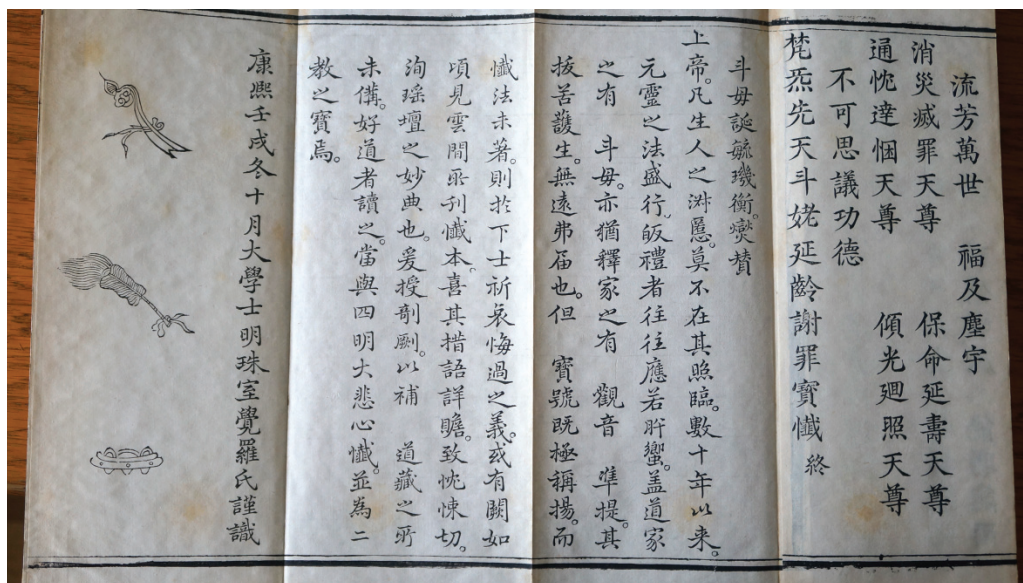 流芳萬世　福及塵宇
消災滅罪天尊　保命延壽天尊
通忱達悃天尊　傾光廻照天尊
不可思議功德
梵炁先天斗姥延齡謝罪寶懺　終
斗母誕毓璣衡。爕贊
上帝。凡生人之淋慝。莫不在其照臨。數十年以来。
元靈之法盛行。皈禮者往往應若肸蠁。盖道家
之有　斗母。亦猶釋家之有　觀音　準提。其
拔苦護生。無遠弗届也。但　寶號既極稱揚。而
懺法未著。則扵下士祈哀悔過之義。或有闕如
頃見雲間所刊懺本。喜其措語詳贍。致忱悚切。
洵瑶壇之妙典也。爰授剞劂。以補　道藏之所
未備。好道者讀之。當與四明大悲心懺。並為二
教之寳焉。
康熈壬戌冬十月大學士明珠室覺羅氏謹識